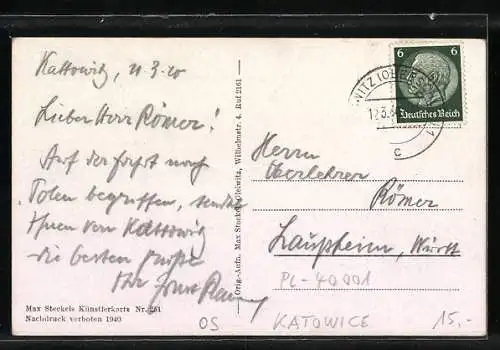 Kattowitz, 11.3.40
Lieber Herr Römer!
Auf der Fahrt nach
Polen begriffen, sendet
Ihnen von Kattowitz
die besten Grüße
Ihr
Max Steckels Künstlerkarte Nr. 251
Nachdruck verboten 1940
Orig.-Aufn. Max Steckel, Gleiwitz, Wilhelmstr. 4. Ruf 2161
6 6
Deutsches Reich
12.3.
c
Herrn
Oberlehrer
Römer
Laupheim, Württ
PL-40001
OS KATOWICE 15,-